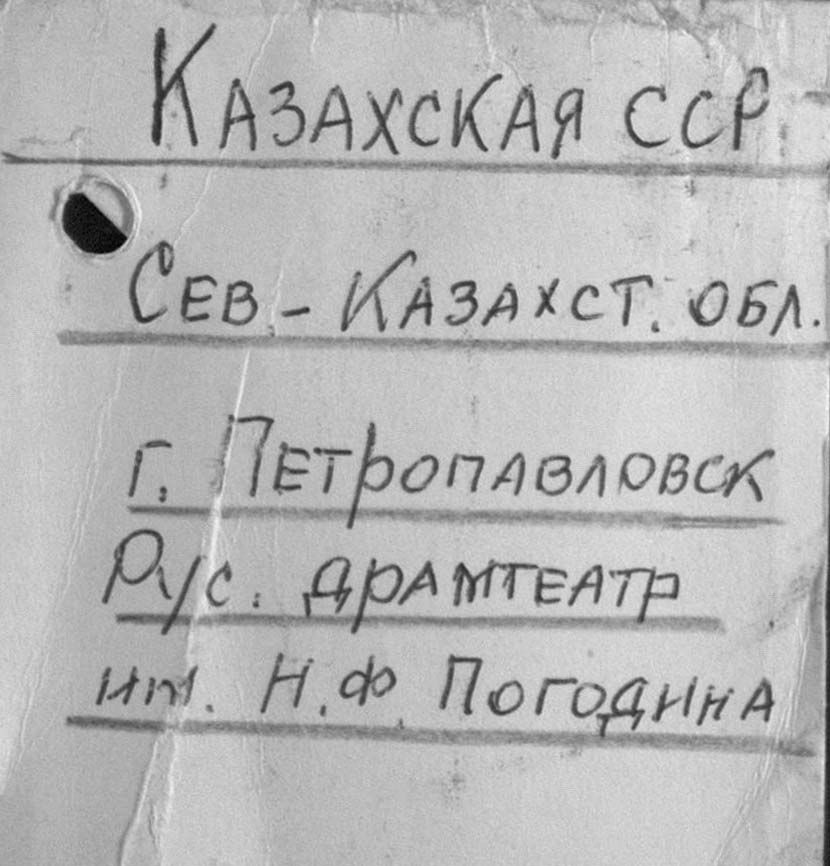 Казахская ССР
Сев.-Казахст. обл.
г. Петропавловск
Рус. драмтеатр
им. Н.Ф. Погодина